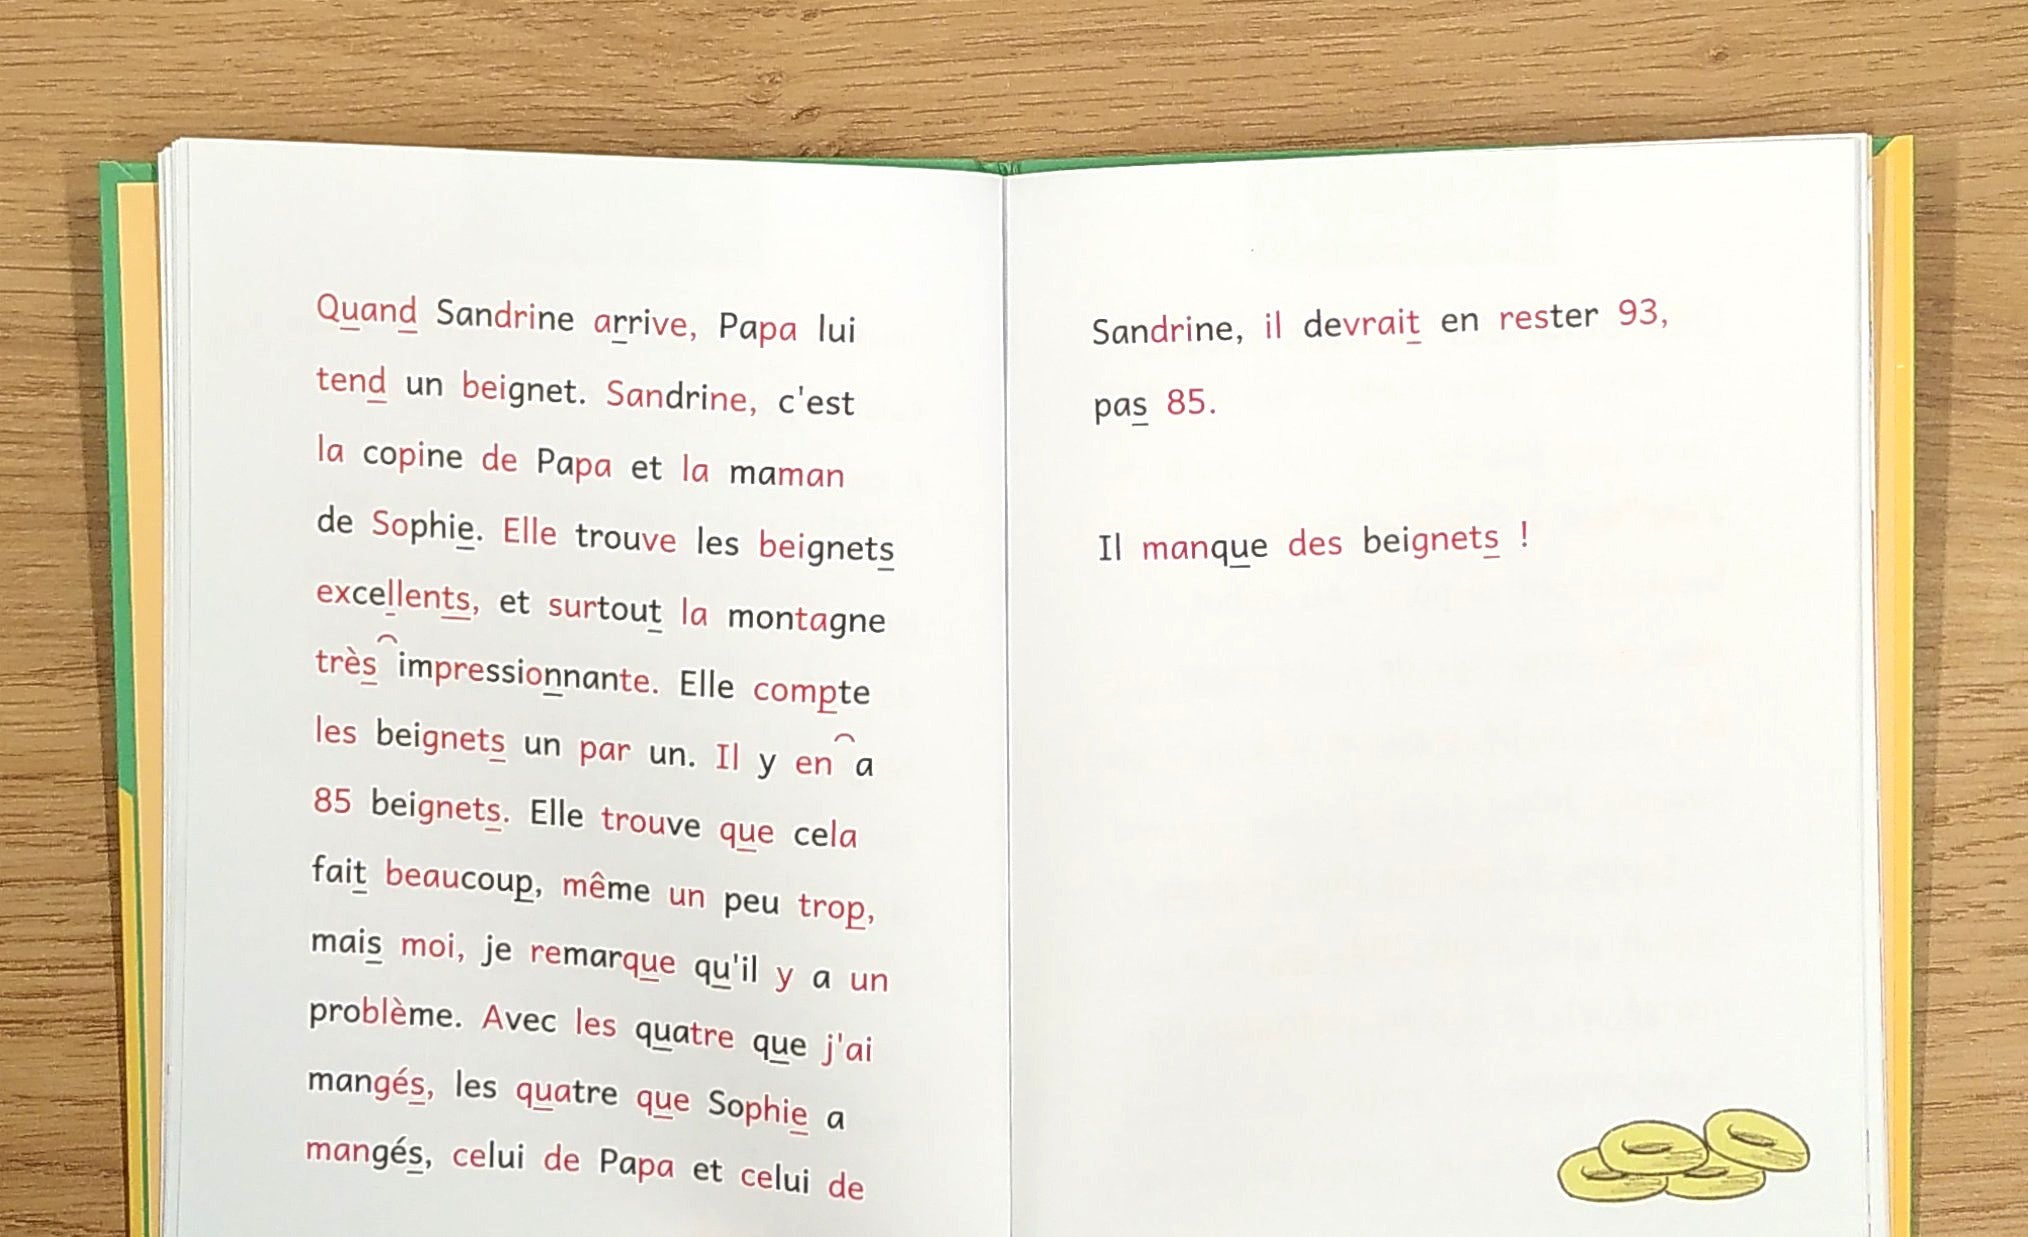 Quand Sandrine arrive, Papa lui
tend un beignet. Sandrine, c'est
la copine de Papa et la maman
de Sophie. Elle trouve les beignets
excellents, et surtout la montagne
très impressionnante. Elle compte
les beignets un par un. Il y en a
85 beignets. Elle trouve que cela
fait beaucoup, même un peu trop,
mais moi, je remarque qu'il y a un
problème. Avec les quatre que j'ai
mangés, les quatre que Sophie a
mangés, celui de Papa et celui de
Sandrine, il devrait en rester 93,
pas 85.
Il manque des beignets !